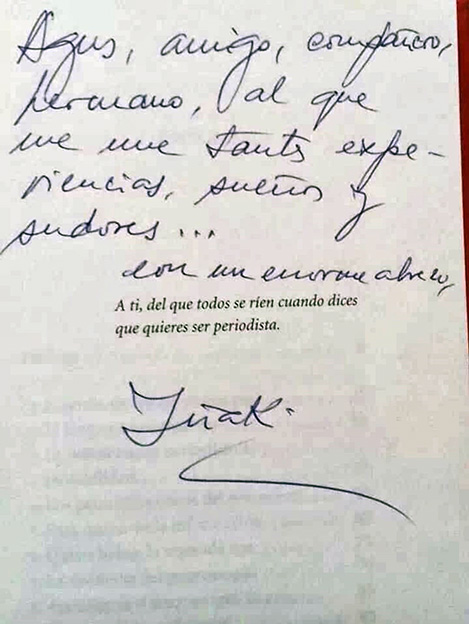 Agus, amigo, compañero,
hermano, al que
me une tantas expe-
riencias, sueños y
sudores...
con un enorme abrazo,
A ti, del que todos se ríen cuando dices
que quieres ser periodista.
Iñaki